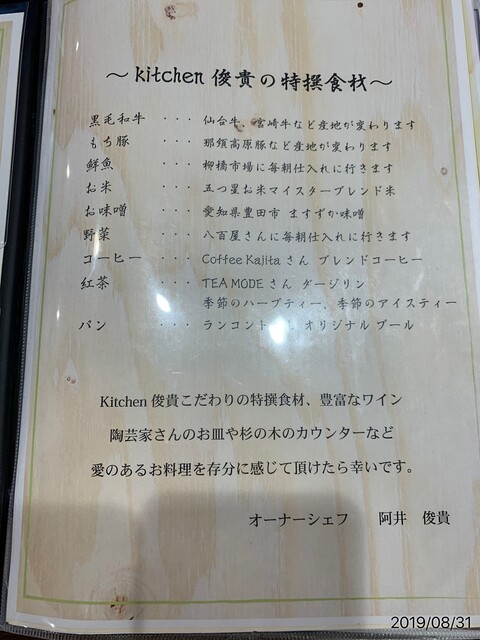 ～kitchen 俊貴の特撰食材～
黒毛和牛 ・・・ 仙台牛、宮崎牛など産地が変わります
もち豚 ・・・ 那須高原豚など産地が変わります
鮮魚 ・・・ 柳橋市場に毎朝仕入れに行きます
お米 ・・・ 五つ星お米マイスターブレンド米
お味噌 ・・・ 愛知県豊田市 ますずか味噌
野菜 ・・・ 八百屋さんに毎朝仕入れに行きます
コーヒー ・・・ Coffee Kajita さん ブレンドコーヒー
紅茶 ・・・ TEA MODE さん ダージリン
季節のハーブティー、季節のアイスティー
パン ・・・ オリジナル ブール
Kitchen 俊貴こだわりの特撰食材、豊富なワイン
陶芸家さんのお皿や杉の木のカウンターなど
愛のあるお料理を存分に感じて頂けたら幸いです。
オーナーシェフ 阿井 俊貴
2019/08/31